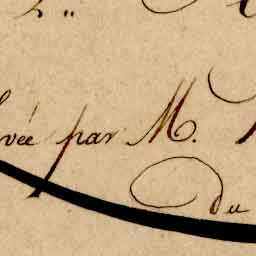 vée par M.
du